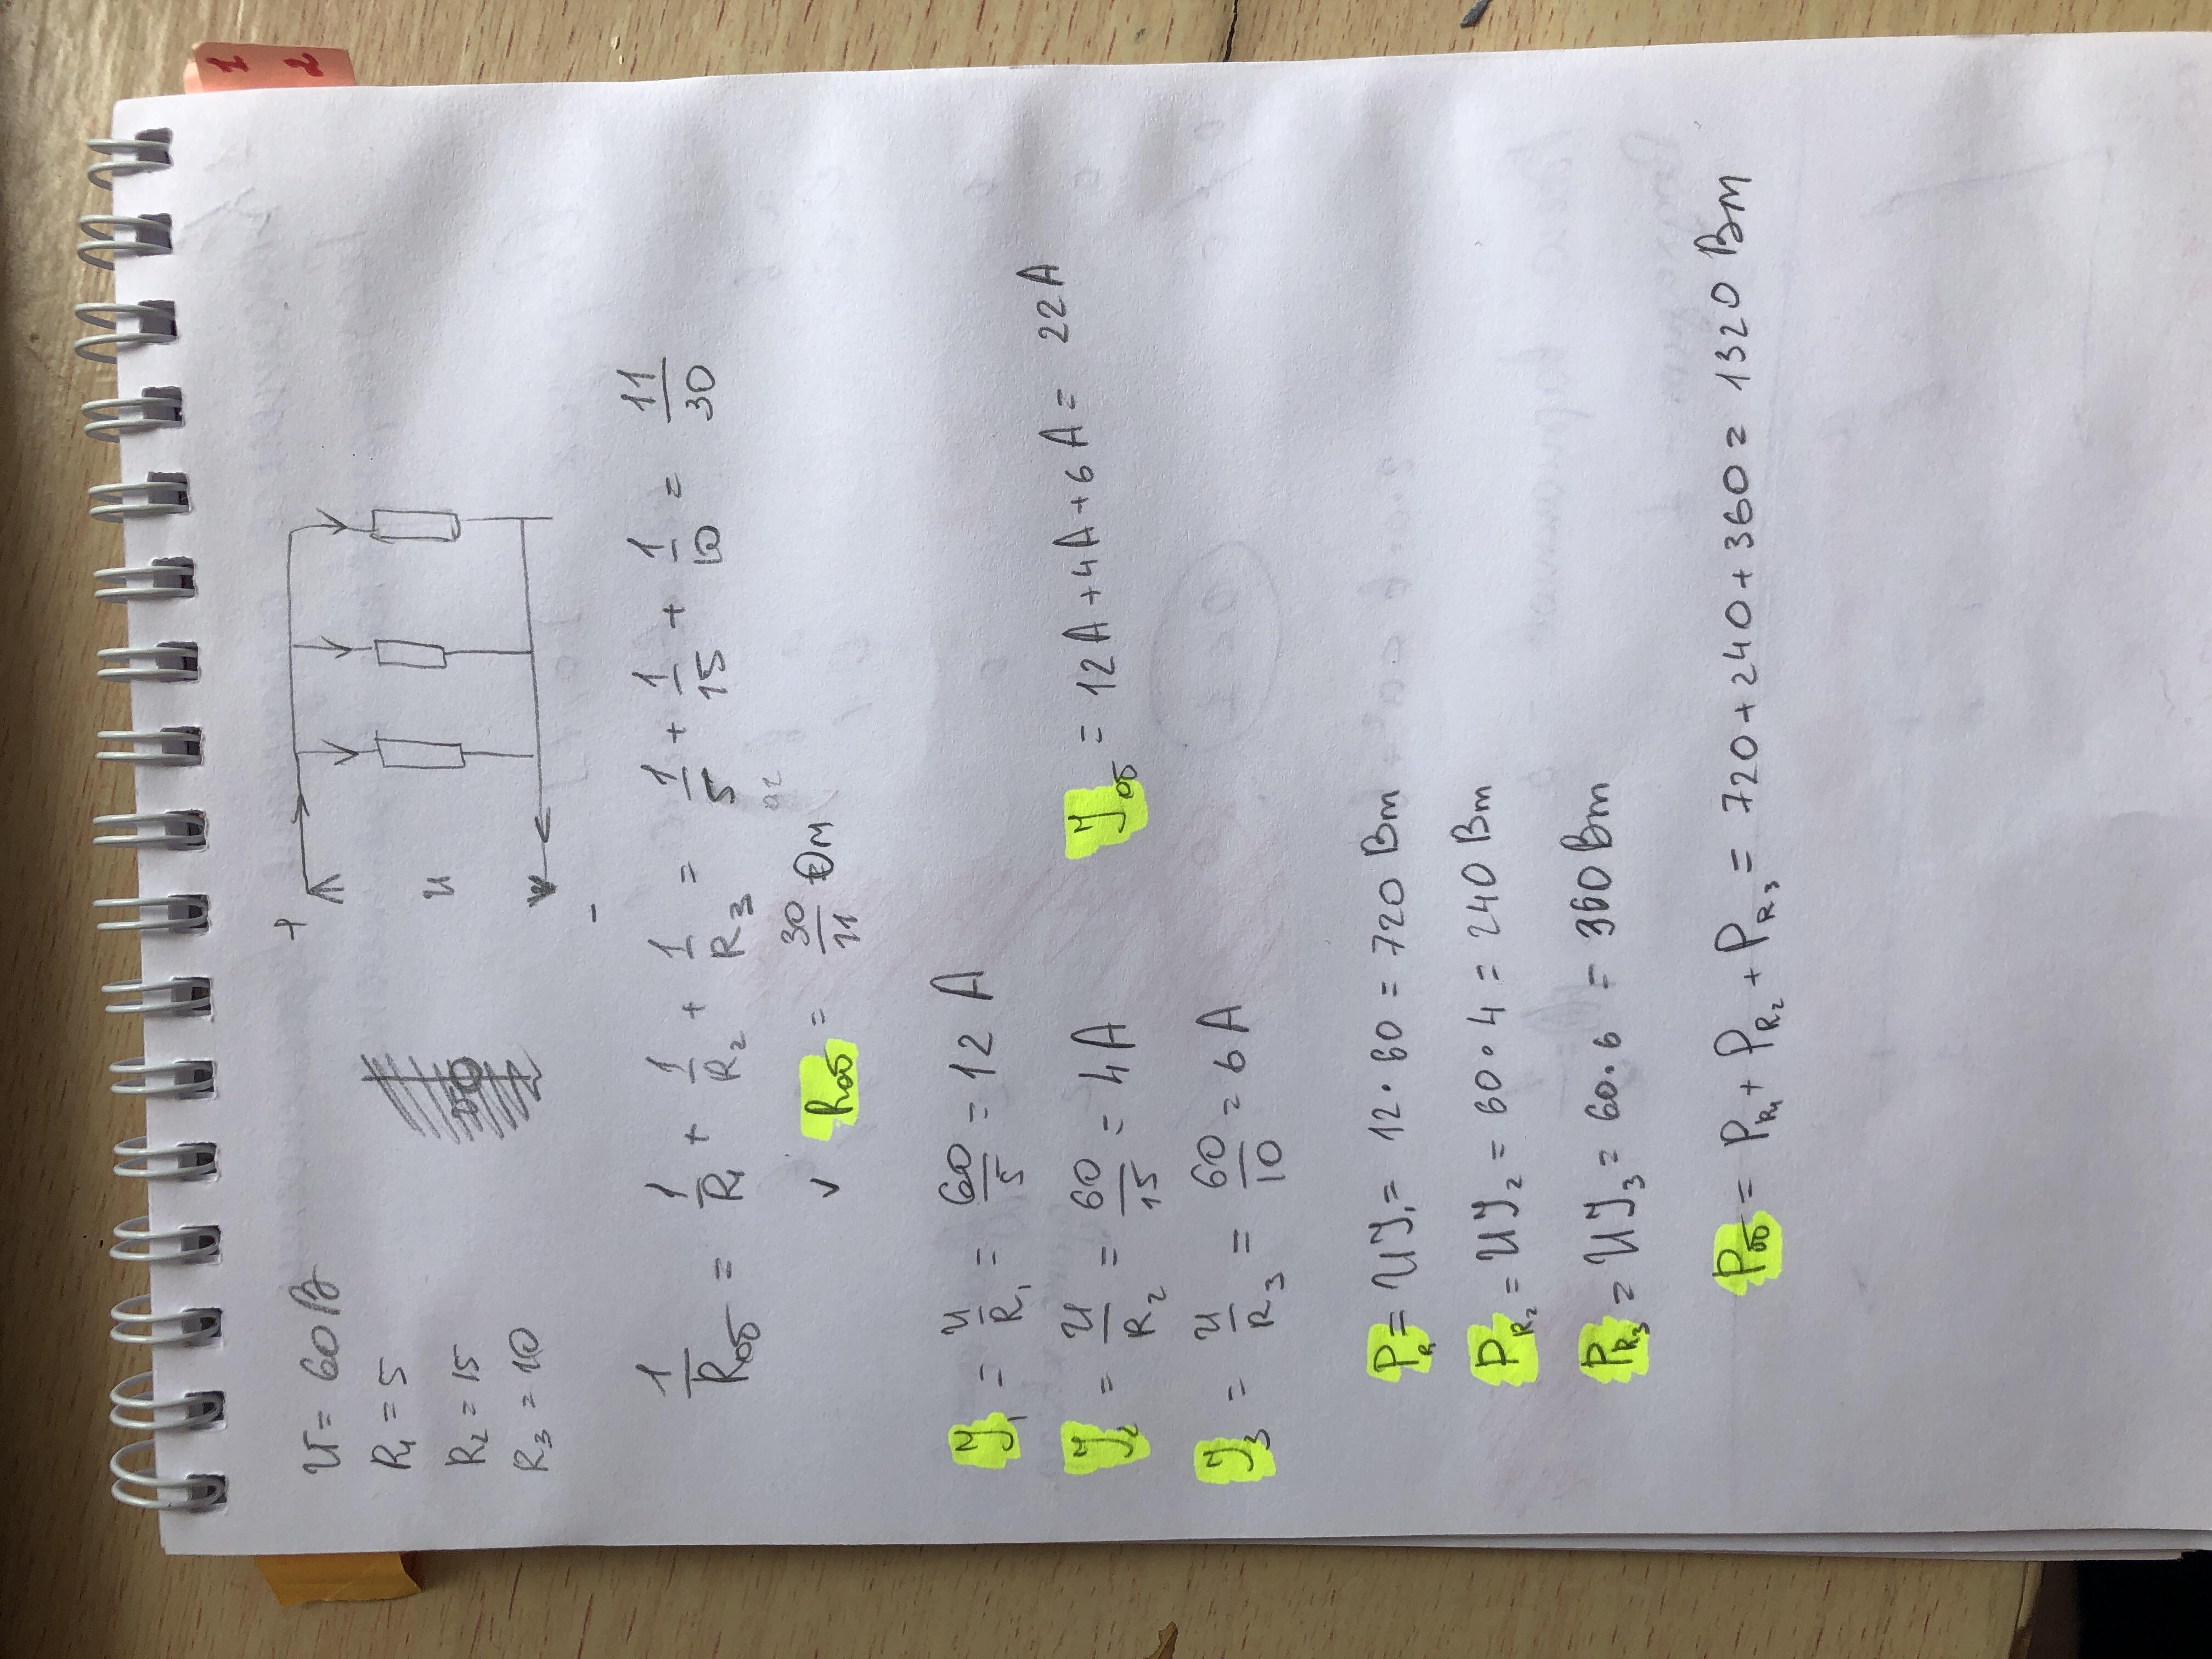 +
U = 60 В
R₁ = 5
U
R₂ = 15
R₃ = 10
-
1/Rоб = 1/R₁ + 1/R₂ + 1/R₃ = 1/5 + 1/15 + 1/10 = 11/30
Rоб = 30/11 Ом
J₁ = U/R₁ = 60/5 = 12 А
J₂ = U/R₂ = 60/15 = 4 А
Jоб = 12 А + 4 А + 6 А = 22 А
J₃ = U/R₃ = 60/10 = 6 А
P = UJ₁ = 12 · 60 = 720 Вт
P_R₂ = UJ₂ = 60 · 4 = 240 Вт
P_R₃ = UJ₃ = 60 · 6 = 360 Вт
Pоб = P_R₁ + P_R₂ + P_R₃ = 720 + 240 + 360 = 1320 Вт